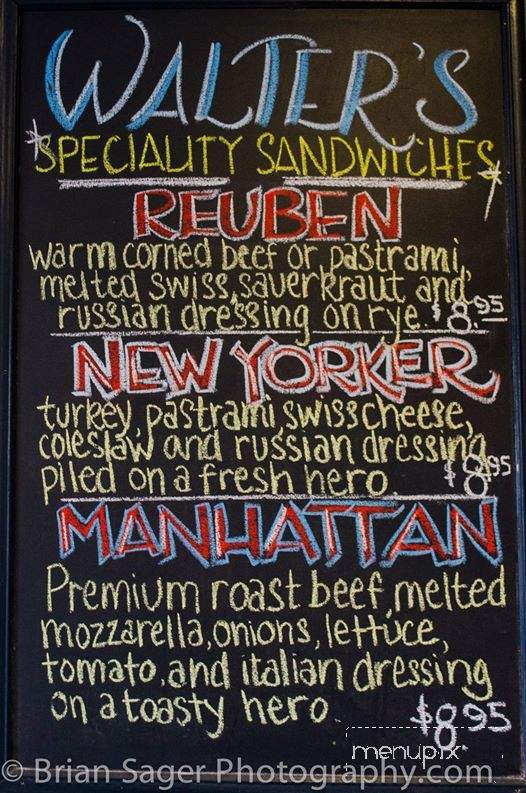 WALTER'S
SPECIALITY SANDWICHES
REUBEN
warm corned beef or pastrami,
melted swiss, sauerkraut and
russian dressing on rye $8.95
NEW YORKER
turkey, pastrami, swiss cheese,
coleslaw and russian dressing
piled on a fresh hero. $8.95
MANHATTAN
Premium roast beef, melted
mozzarella, onions, lettuce,
tomato, and italian dressing
on a toasty hero $8.95
menupix
© Brian Sager Photography.com